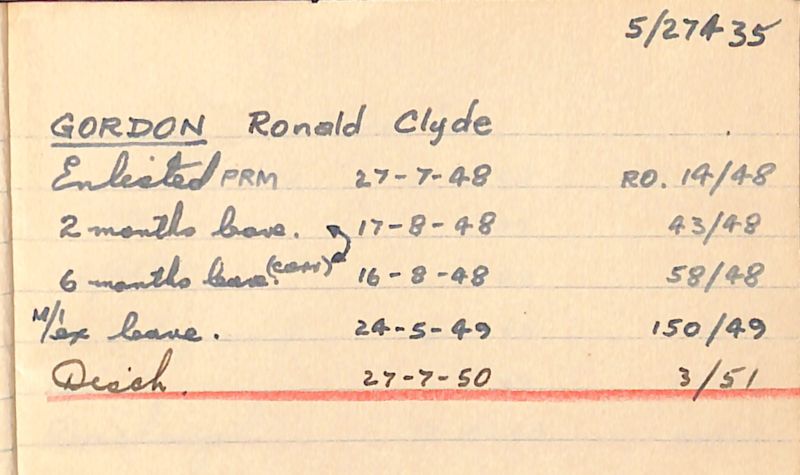 5/27435
GORDON Ronald Clyde
Enlisted PRM 27-7-48 RO. 14/48
2 months leave. 17-8-48 43/48
6 months leave. (corr) 16-8-48 58/48
M/ex leave. 24-5-49 150/49
Disch. 27-7-50 3/51